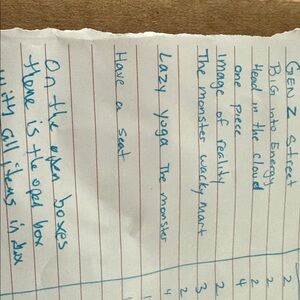 GEN Z Street 2
BIG into Energy 2
Head in the cloud 2
one piece 4
Image of reality 2
The monster wacky mart 3
2
Lazy Yoga The monster 4
Have a seat 1
On the open boxes
there is the open box
with all items in box